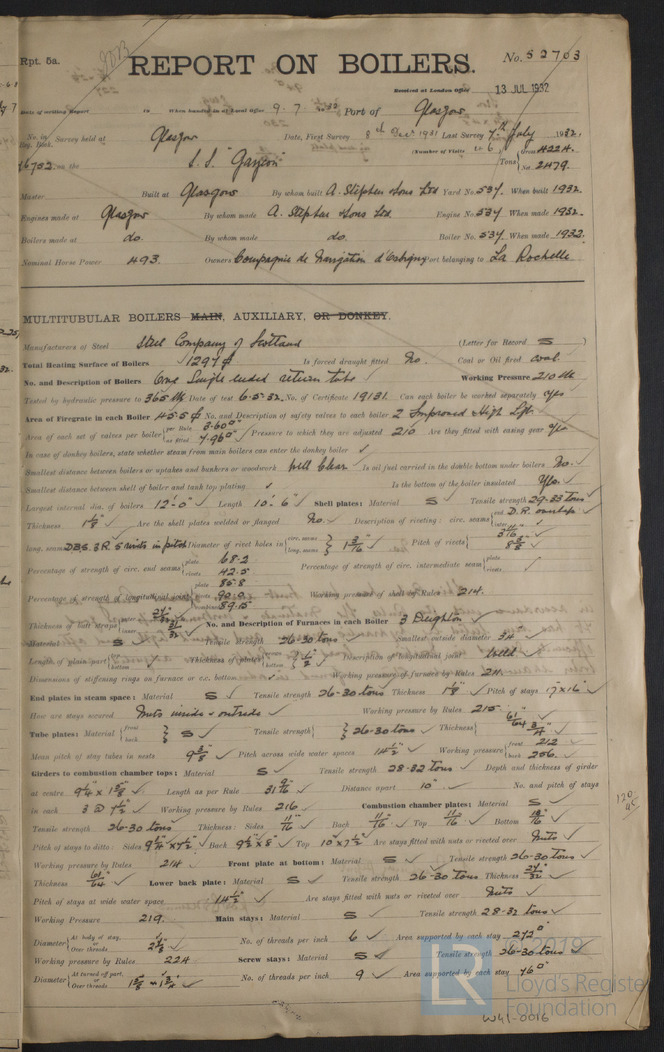 Rpt. 5a.
REPORT ON BOILERS.
No. 52703
Received at London Office 13 JUL 1932
Date of writing Report 19 When handed in at Local Office 9. 7. 1932 Port of Glasgow
No. in Reg. Book. Survey held at Glasgow Date, First Survey 8th Dec 1931 Last Survey 7th July 1932.
(Number of Visits 6)
46702 on the S.S. "Gascon" Tons Gross 4224. Net 2479.
Master Built at Glasgow By whom built A. Stephen & Sons Ltd Yard No. 534. When built 1932.
Engines made at Glasgow By whom made A. Stephen & Sons Ltd Engine No. 534 When made 1932.
Boilers made at do. By whom made do. Boiler No. 534. When made 1932.
Nominal Horse Power 493. Owners Compagnie de Navigation d'Orbigny Port belonging to La Rochelle
MULTITUBULAR BOILERS MAIN, AUXILIARY, OR DONKEY.
Manufacturers of Steel Steel Company of Scotland (Letter for Record S )
Total Heating Surface of Boilers 1297 Is forced draught fitted No. Coal or Oil fired coal
No. and Description of Boilers One Single ended return tube Working Pressure 210 lbs
Tested by hydraulic pressure to 365 lbs Date of test 6.5.32. No. of Certificate 19131. Can each boiler be worked separately yes
Area of Firegrate in each Boiler 45.5 No. and Description of safety valves to each boiler 2 Improved High Lift
Area of each set of valves per boiler per Rule 3.60 as fitted 7.96 Pressure to which they are adjusted 210 Are they fitted with easing gear Yes
In case of donkey boilers, state whether steam from main boilers can enter the donkey boiler ✓
Smallest distance between boilers or uptakes and bunkers or woodwork Well Clear Is oil fuel carried in the double bottom under boilers No.
Smallest distance between shell of boiler and tank top plating ✓ Is the bottom of the boiler insulated Yes.
Largest internal dia. of boilers 12'-0" Length 10'-6" Shell plates: Material S Tensile strength 29-33 tons
Thickness Are the shell plates welded or flanged No. Description of riveting: circ. seams end D.R. overlap
long. seams D.B.S. 3 R. 5 rivets in pitch Diameter of rivet holes in circ. seams long. seams 1 3/16 Pitch of rivets 8 3/8
Percentage of strength of circ. end seams plate 68.2 rivets 42.5 Percentage of strength of circ. intermediate seam plate rivets
Percentage of strength of longitudinal joint plate 85.8 rivets 90.0 combined 89.15 Working pressure of shell by Rules 214.
Thickness of butt straps outer inner No. and Description of Furnaces in each Boiler 3 Deighton
Material S Tensile strength 26-30 tons Smallest outside diameter
Length of plain part top bottom Thickness of plates crown bottom Description of longitudinal joint Weld
Dimensions of stiffening rings on furnace or c.c. bottom Working pressure of furnace by Rules
End plates in steam space: Material S Tensile strength 26-30 tons Thickness 1 1/8 Pitch of stays 17" x 16"
How are stays secured Nuts inside & outside Working pressure by Rules 215
Tube plates: Material front back S Tensile strength 26-30 tons Thickness 61/64 3/4
Mean pitch of stay tubes in nests 9 3/8 Pitch across wide water spaces 14 1/2 Working pressure front 212 back 206.
Girders to combustion chamber tops: Material S Tensile strength 28-32 tons Depth and thickness of girder
at centre Length as per Rule 31 9/16 Distance apart 10" No. and pitch of stays
in each 3 @ 7 1/2 Working pressure by Rules 216 Combustion chamber plates: Material S
Tensile strength 26-30 tons Thickness: Sides 11/16 Back 11/16 Top 11/16 Bottom
Pitch of stays to ditto: Sides Back 9 1/2 x 8" Top 10 x 7 1/2 Are stays fitted with nuts or riveted over Nuts
Working pressure by Rules 214 Front plate at bottom: Material S Tensile strength 26-30 tons
Thickness 61/64 Lower back plate: Material S Tensile strength 26-30 tons Thickness
Pitch of stays at wide water space 14 1/2 Are stays fitted with nuts or riveted over Nuts
Working Pressure 219. Main stays: Material S Tensile strength 28-32 tons
Diameter At body of stay, or Over threads No. of threads per inch 6 Area supported by each stay 272
Working pressure by Rules 224 Screw stays: Material S Tensile strength 26-30 tons
Diameter At turned off part, or Over threads No. of threads per inch 9 Area supported by each stay 76
120/45
© 2019
LR Lloyd's Register Foundation
W41-0016